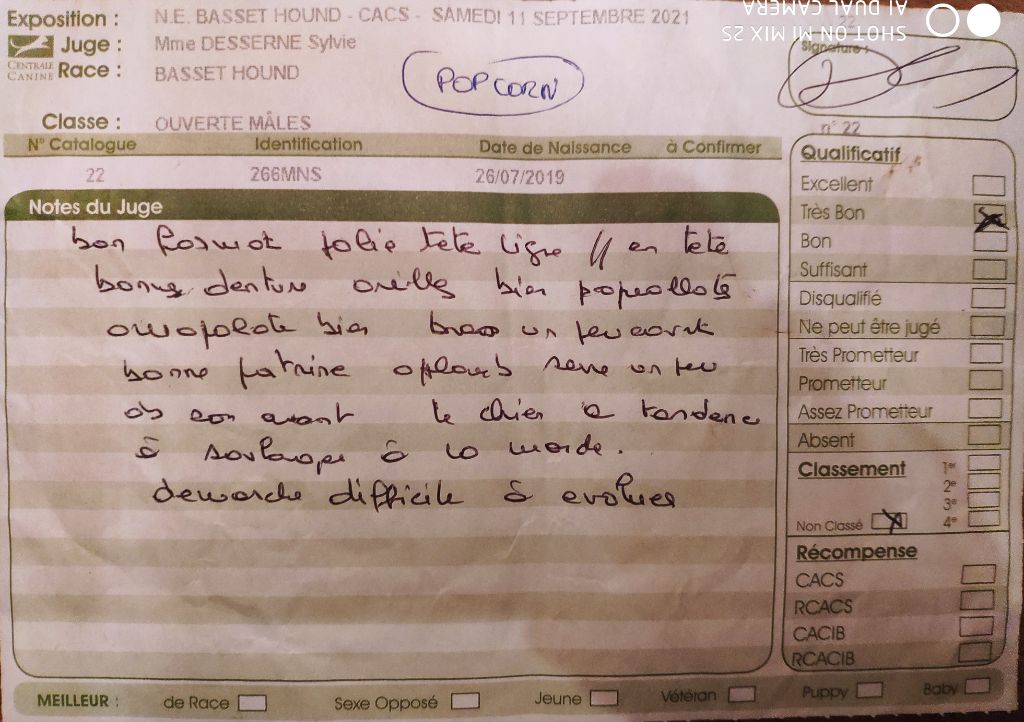 Exposition : N.E. BASSET HOUND - CACS - SAMEDI 11 SEPTEMBRE 2021
Juge : Mme DESSERNE Sylvie
CENTRALE CANINE
Race : BASSET HOUND
POPCORN
Classe : OUVERTE MÂLES
N° Catalogue Identification Date de Naissance à Confirmer
22 266MNS 26/07/2019
Notes du Juge
bon format jolie tête ligne // en tête
bonne denture oreilles bien papillotés
omoplate bien bras un peu court
bonne poitrine aplomb serre un peu
le chien a tendance
à la marche.
démarche difficile à evoluer
22
SHOT ON MI MIX 2S
AI DUAL CAMERA
Signature :
n° 22
Qualificatif
Excellent
Très Bon
Bon
Suffisant
Disqualifié
Ne peut être jugé
Très Prometteur
Prometteur
Assez Prometteur
Absent
Classement 1er
2e
3e
Non Classé 4e
Récompense
CACS
RCACS
CACIB
RCACIB
MEILLEUR : de Race Sexe Opposé Jeune Vétéran Puppy Baby